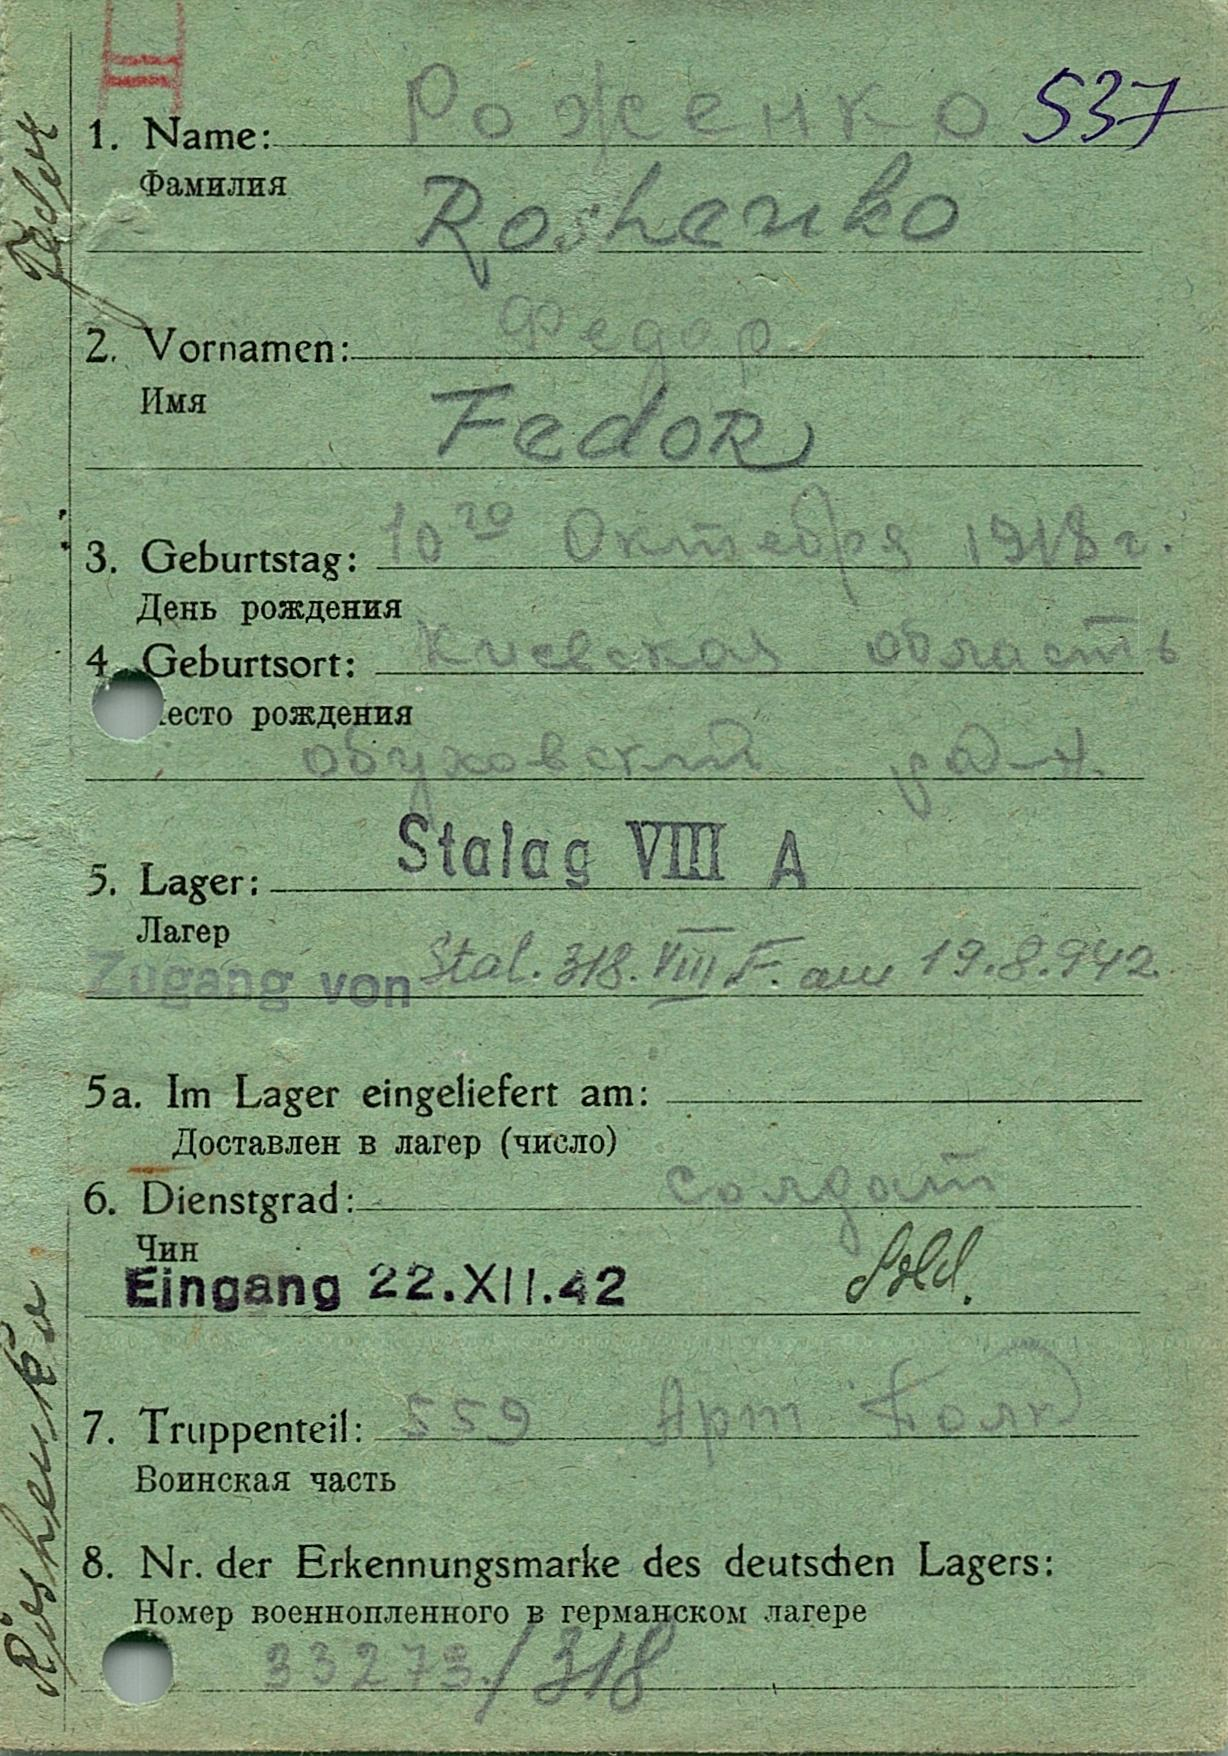 Роженко 537
1. Name:
Фамилия
Roshenko
Федор.
2. Vornamen:
Имя
Fedor
3. Geburtstag: 10го Октебря 1918 г.
День рождения
4. Geburtsort: Киевская область
есто рождения
обуховский рa-н.
Stalag VIII A
5. Lager:
Лагер
Zugang von Stal. 318. VIII F. am 19.8.942.
5a. Im Lager eingeliefert am:
Доставлен в лагер (число)
6. Dienstgrad: солдат
Чин
Eingang 22.XII.42 Sold.
7. Truppenteil: 559 Арт Полк
Воинская часть
8. Nr. der Erkennungsmarke des deutschen Lagers:
Номер военнопленного в германском лагере
33273./318
Roshenko Fedor